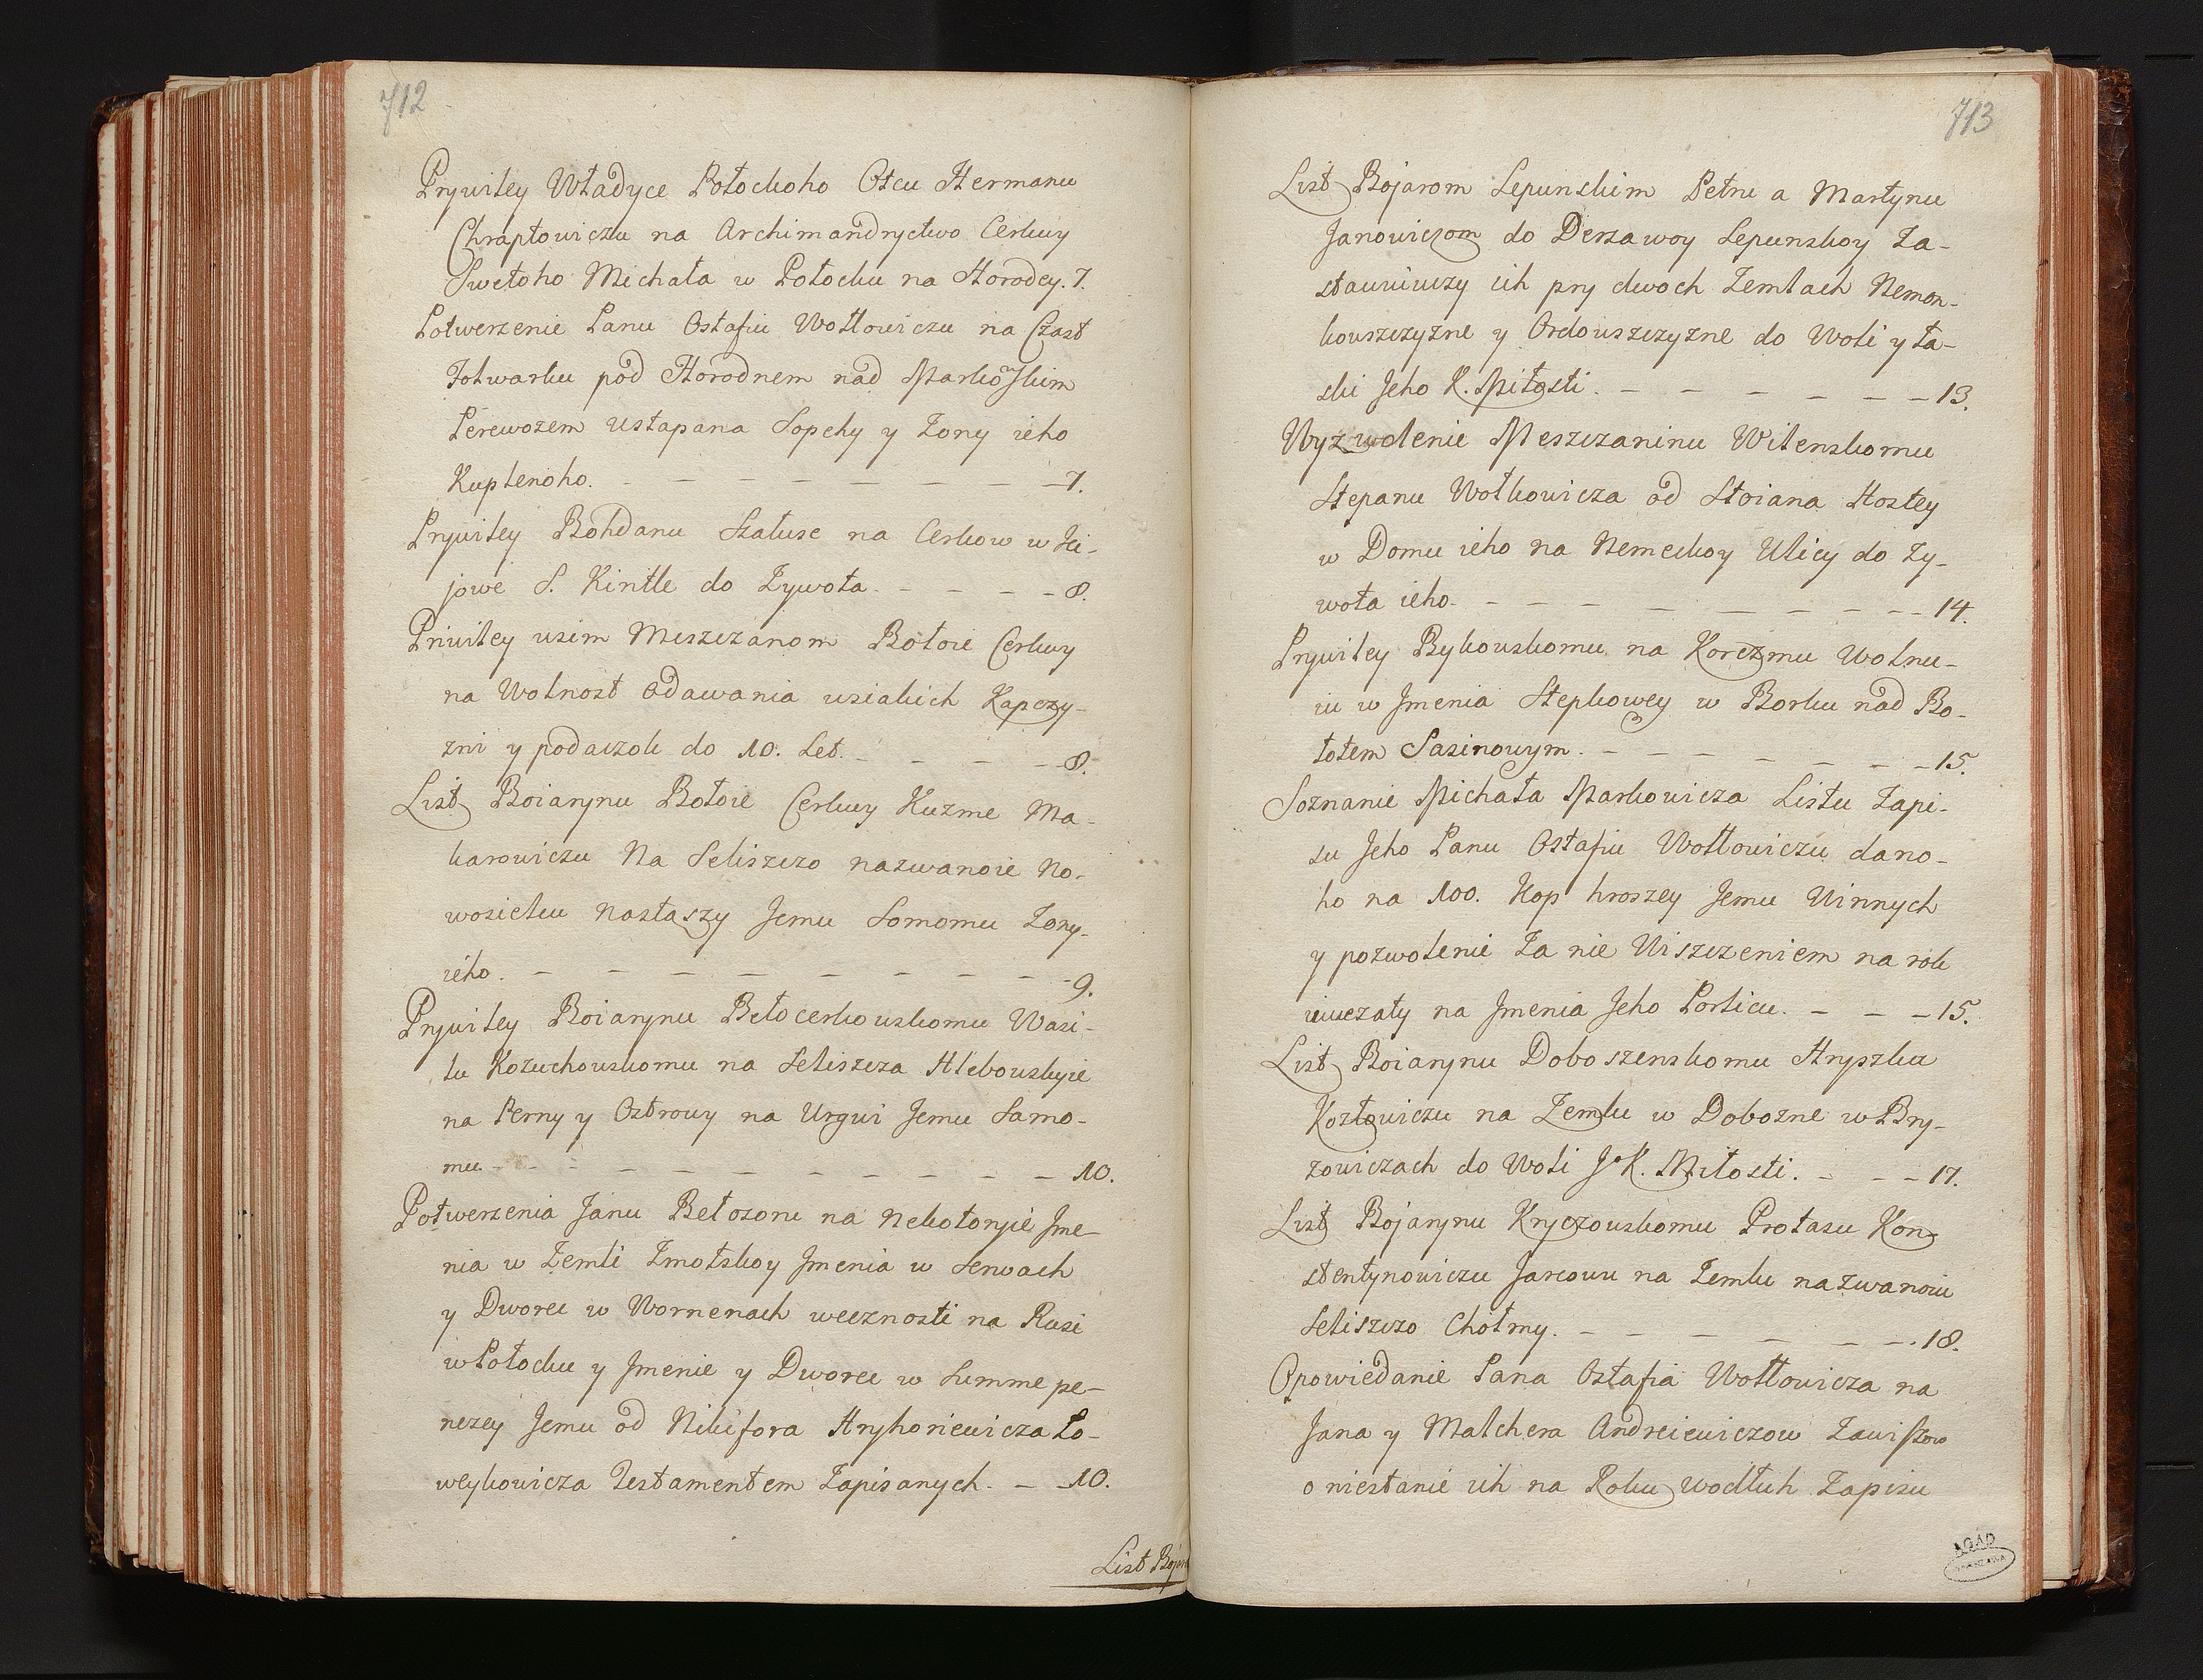 712
Prywiley Władyce Połockoho Otcu Hermanu
Chraptowiczu na Archimandryctwo Cerkwy
Swetoho Michała w Połocku na Horodcy. 7.
Potwerzenie Panu Ostafiu Wołłowiczu na Czast
Folwarku pod Horodnem nad Markowskim
Perewozem ustapana Sopehy y Zony ieho
Kuplenoho. — — — — — — — — 7.
Prywiley Bohdanu Szałuse na Cerkow w Ki-
jowe S. Kiriłłe do Zywota. — — — — 8.
Priwiley usim Meszczanom Bołoie Cerkwy
na Wolnost Odawania usiakich Kapczy-
zni y podaczok do 10. Let. — — — — 8.
List Boiarynu Bołoie Cerkwy Kuzme Ma-
karowiczu Na Seliszczo nazwanoie No-
wosielcu nastaszy Jemu Somomu Zony
ieho. — — — — — — — — — 9.
Prywiley Boiarynu Bełocerkouskomu Wasi-
lu Kozuchouskomu na Seliszcza Hlebouskyie
na Perny y Ostrowy na Urgui Jemu Samo-
mu. — — — — — — — — — — 10.
Potwerzenia Janu Bełozoru na Nekotoryie Jme-
nia w Zemli Zmotskoy Jmenia w Serwach
y Dworec w Wornenach wecznosti na Rusi
w Połocku y Jmenie y Dworec w Summe pe-
nezey Jemu od Nikifora Hryhoriewicza Bo-
weykowicza Testamentem Zapisanych. — — 10.
List Bojar
713
List Bojarom Lepunskim Petru a Martynu
Janowiczom do Derzawoy Lepunskoy Za-
stawiwszy ich pry dwoch Zemlach Nemon-
kouszczyzne y Ordouszczyzne do Woli y ła-
ski Jeho K. Miłosti. — — — — — — 13.
Wyzwolenie Meszczaninu Wilenskomu
Stepanu Wołkowicza od Stoiana Hostey
w Domu ieho na Nemeckoy Ulicy do Zy-
wota ieho. — — — — — — — — 14.
Prywiley Bykouskomu na Korczmu Wolnu-
iu w Jmenia Stepkowey w Borku nad Bo-
łotem Sasinowym. — — — — — — — 15.
Soznanie Michała Markowicza Listu Zapi-
su Jeho Panu Ostafiu Wołłowiczu dano-
ho na 100. Kop hroszey Jemu Winnych
y pozwolenie Za nie Uiszczeniem na rok
uwezaty na Jmenia Jeho Porticu. — — — 15.
List Boiarynu Doboszenskomu Hryszku
Kozłowiczu na Zemlu w Dobozne w Bry-
zowiczach do Woli J. K. Miłosti. — — — 17.
List Bojarynu Kryczouskomu Protasu Kon-
stentynowiczu Jarcowu na Zemlu nazwanoiu
Seliszczo Chołmy. — — — — — — — 18.
Opowiedanie Pana Ostafia Wołłowicza na
Jana y Malchera Andreiewiczow Zawiszow
o niestanie ich na Roku wodłuh Zapisu
AGAD
WARSZAWA